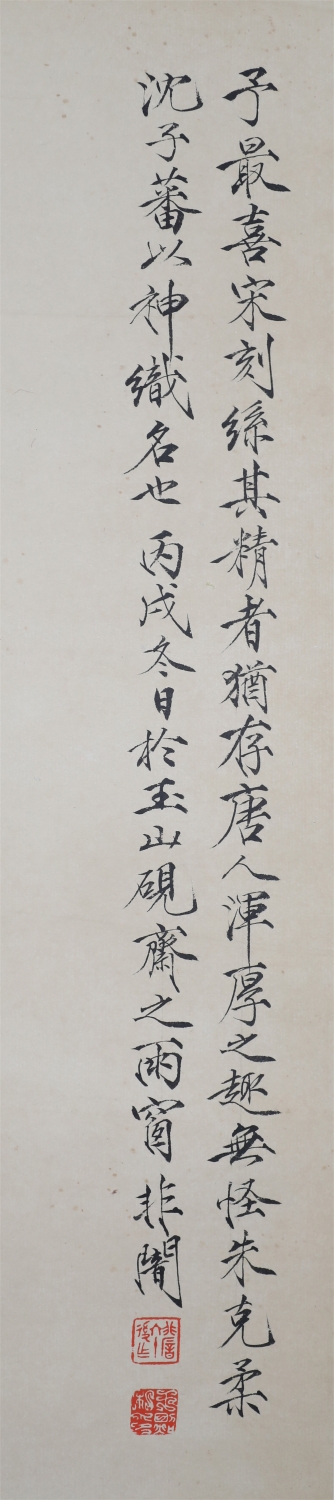 予最喜宋刻絲其精者猶存唐人渾厚之趣無怪朱克柔
沈子蕃以神織名也丙戌冬日於玉山硯齋之雨窗非闇